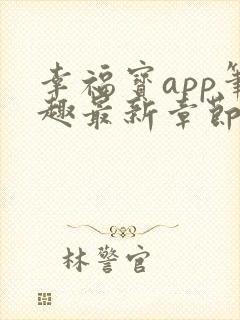 幸福宝app笔
趣最新章节
林警官